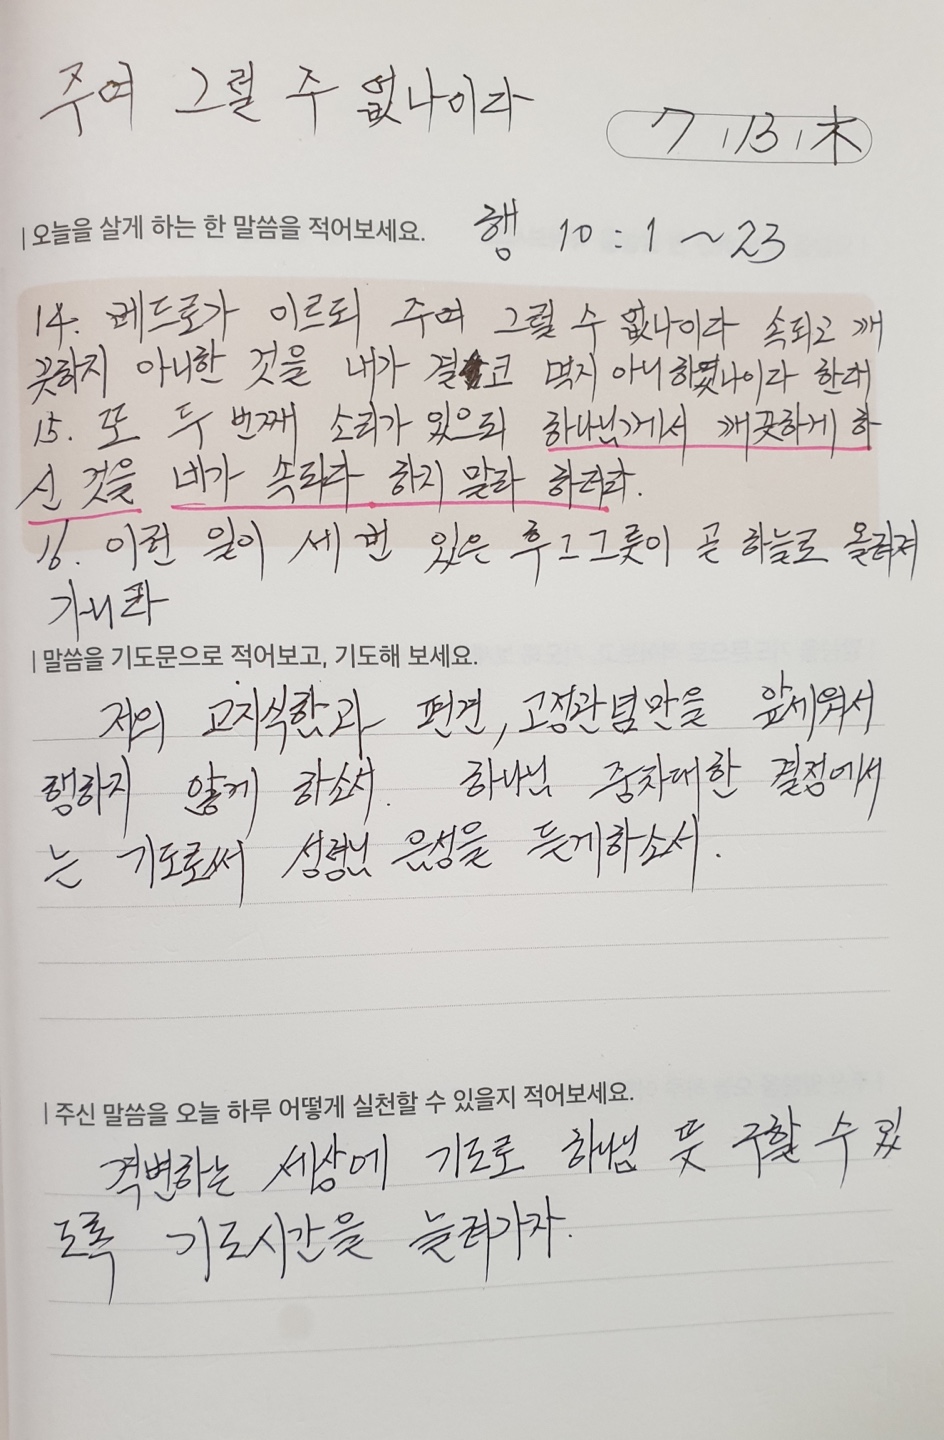 주여 그럴 수 없나이다
7 / 13 / 木
오늘을 살게 하는 한 말씀을 적어보세요.
행 10 : 1 ~ 23
14. 베드로가 이르되 주여 그럴 수 없나이다 속되고 깨
끗하지 아니한 것을 내가 결코 먹지 아니하였나이다 한대
15. 또 두 번째 소리가 있으되 하나님께서 깨끗하게 하
신 것을 네가 속되다 하지 말라 하더라.
16. 이런 일이 세 번 있은 후 그 그릇이 곧 하늘로 올려져
가니라
말씀을 기도문으로 적어보고, 기도해 보세요.
저의 고지식함과 편견, 고정관념만을 앞세워서
행하지 않게 하소서. 하나님 중차대한 결정에서
는 기도로써 성령님 음성을 듣게하소서.
주신 말씀을 오늘 하루 어떻게 실천할 수 있을지 적어보세요.
격변하는 세상에 기도로 하나님 뜻 구할 수 있
도록 기도시간을 늘려가자.